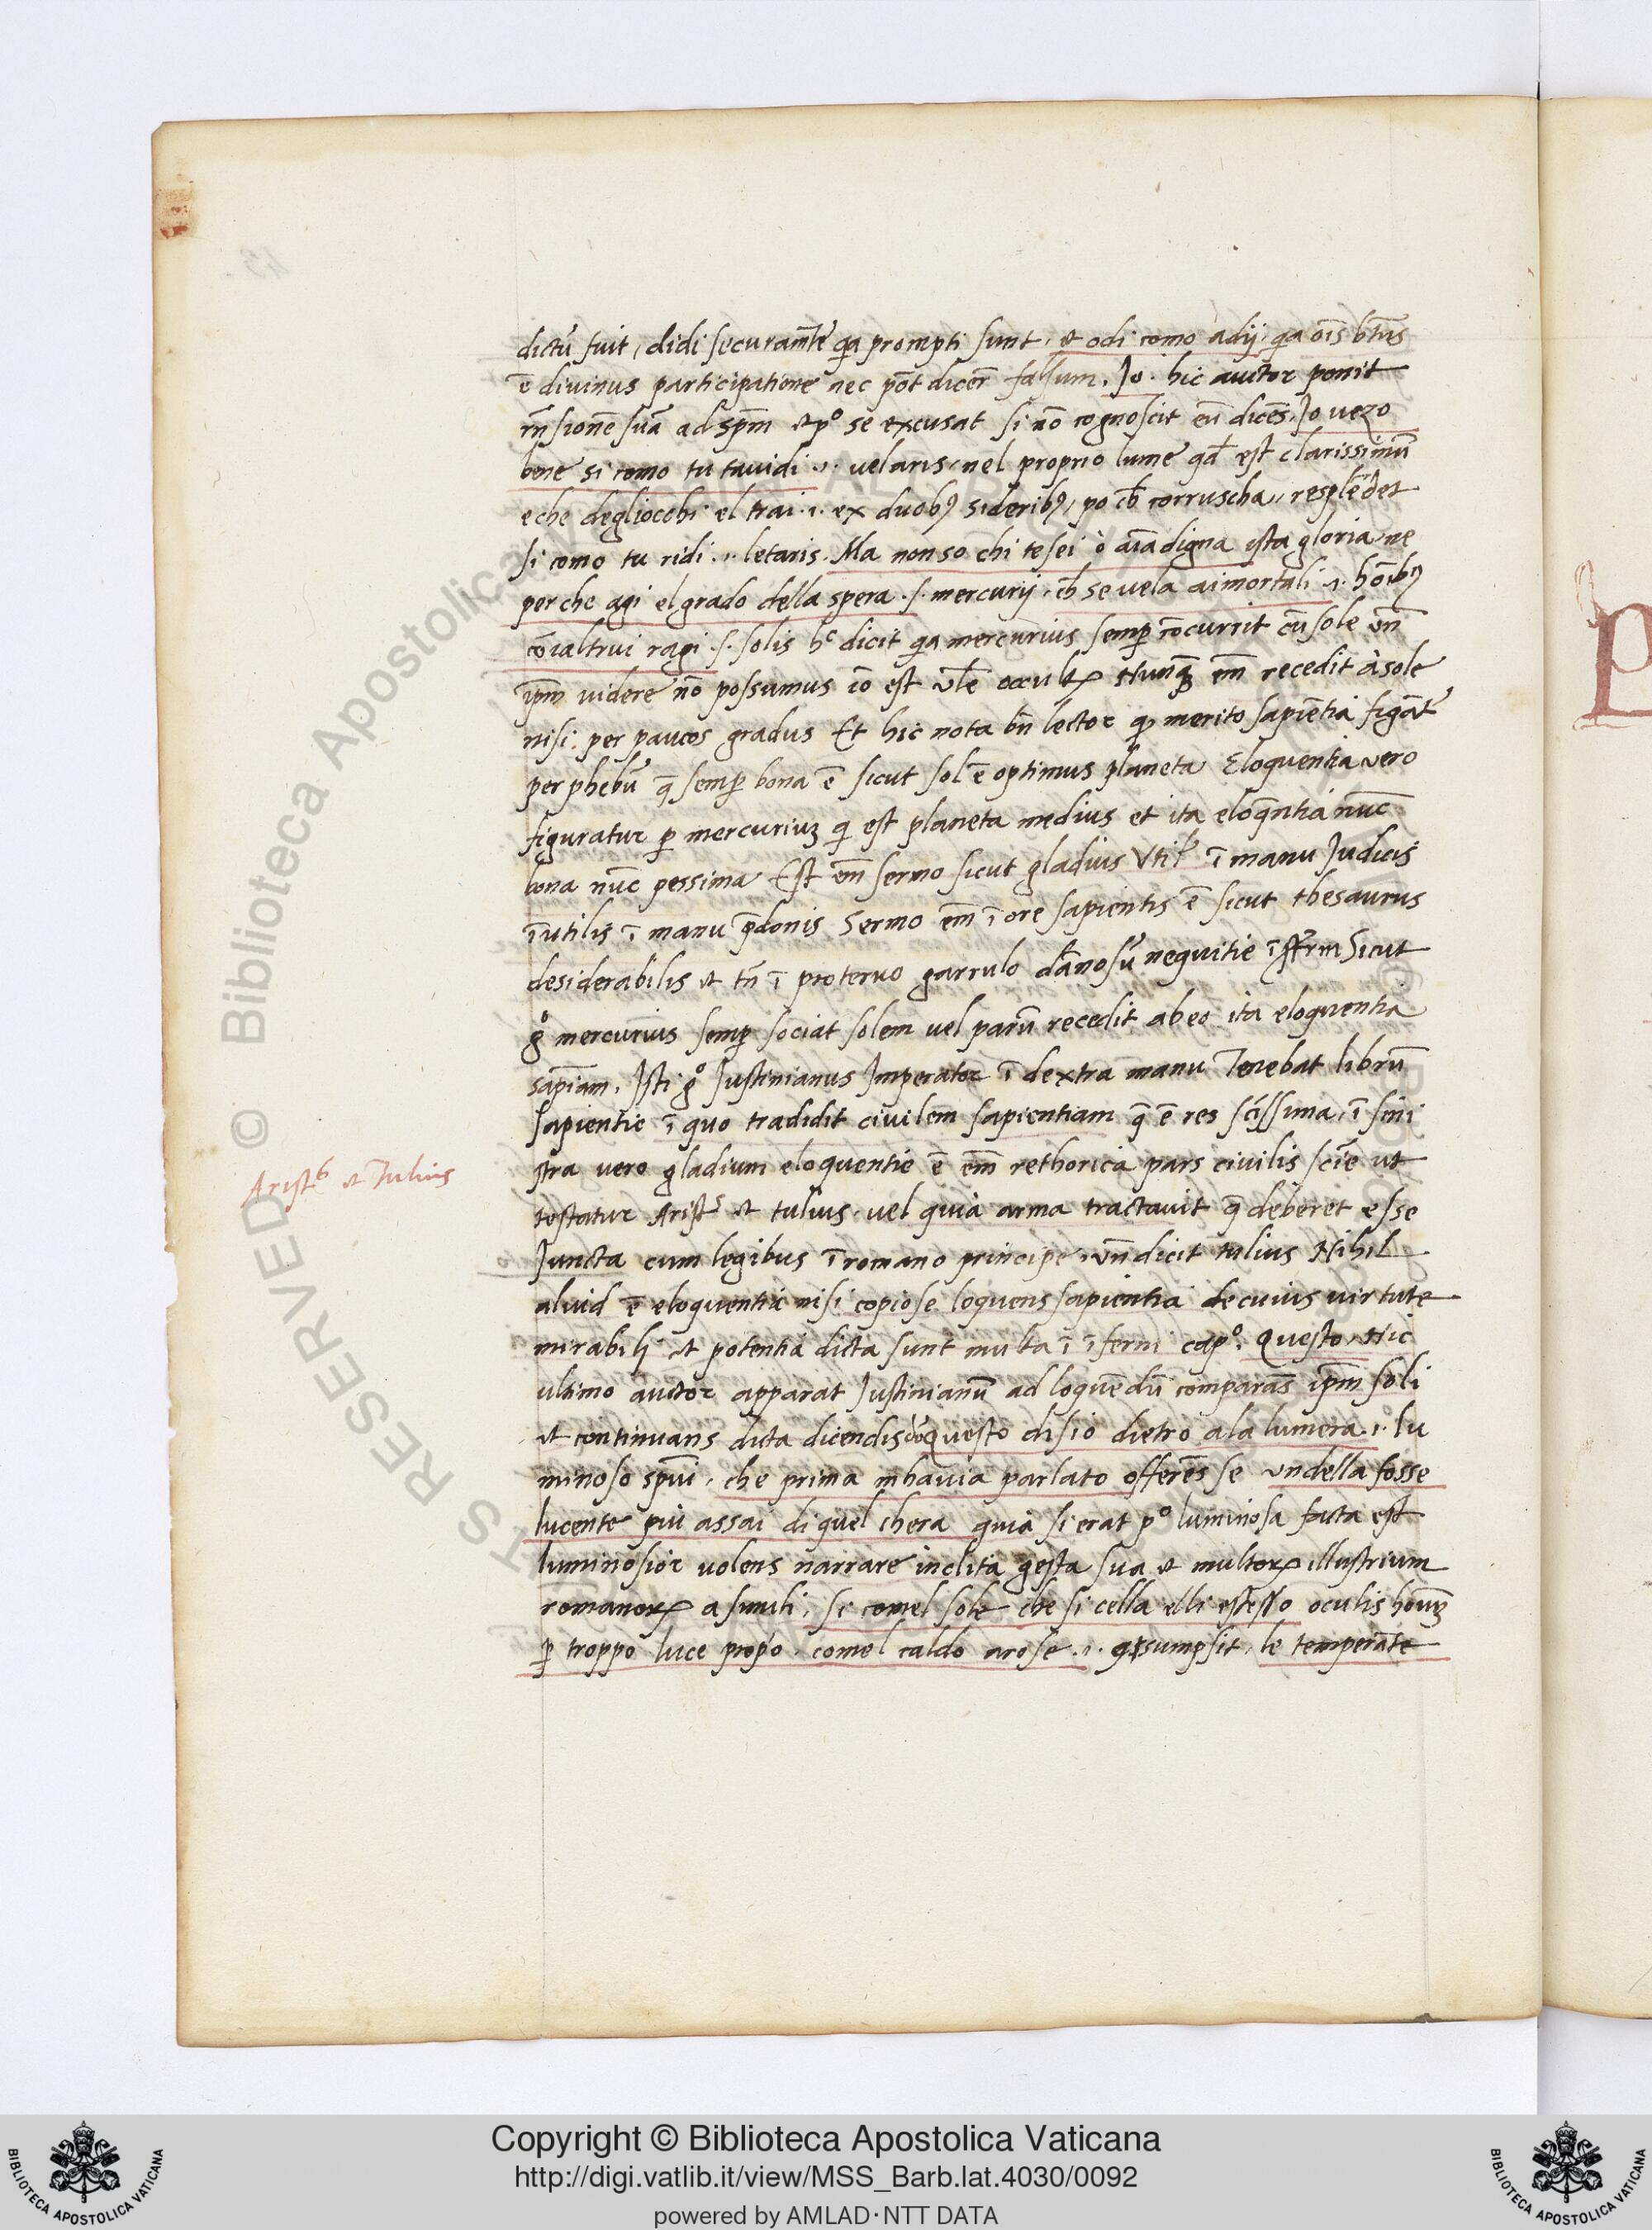 dictū fuit, didi securam̄te qa prompti sunt, et odi como adij, qa oīs btūs
ē divinus participatione nec pōt dicere falsum. Jo. hic auctor ponit
rn̄sionē suā ad spm̄ et pº se excusat si nō cognoscit eū dicēs. Jo vezo
bene si como tu tavidi .i. velaris, nel proprio lume qd est clarissimū
e che degliocchi el trai .i. ex duobꝰ sideribꝰ, po ch corruscha, resplēdet
si como tu ridi .i. letaris. Ma non so chi te sei ò aīa digna ista gloria ne
per che agi el grado della spera .s. mercurij, ch se vela ai mortali .i. hōibꝰ
cō ialtrui ragi .s. solis hc dicit qa mercurius semp cōcurrit cū sole vn̄
ipm̄ videre nō possumus iō est vłe occultꝝ Nunqꝫ em̄ recedit à sole
nisi per paucos gradus Et hic nota bn̄ lector qꝫ merito sapientia figāt
per phebū q̄ semp bona ē sicut sol ē optimus planeta Eloquentia vero
figuratur p mercuriuꝫ qi est planeta medius et ita eloqntia nūc
bona nūc pessima Est em̄ sermo sicut gladius Vtił ī manu Judicis
īutilis ī manu p̄donis Sermo em̄ ī ore sapientis ē sicut thesaurus
desiderabilis et tn̄ ī protervo garrulo dānosū nequitie īstr̄m Sicut
gº mercurius semp sociat solem vel parū recedit ab eo ita eloquentia
sapīam. Isti gº Justinianus Imperator ī dextra manu Tenebat librū
sapientie ī quo tradidit civilem sapientiam q̄ ē res scīssima, ī sini
stra vero gladium eloquentie ē em̄ rethorica pars civilis sciē ut
testatur Arists et tulius, vel quia arma tractavit q̄ deberet esse
Juncta cum legibus ī romano principe, vn̄ dicit tulius Nihil
aluid ē eloquentia nisi copiose loquens sapientia de cuius virtute
mirabilj et potentia dicta sunt multa ī īferni capº. Questo, Hic
ultimo auctor apparat Justinianū ad loquēdū comparās ipm̄ soli
et continuans dicta dicendis dc Questo disio dietro a la lumera .i. lu
minoso spūi, che prima mhavia parlato offerēs se undella fosse
lucente piu assai di quel chera quia si erat pº luminosa facta est
luminosior volens narrare inclita gesta sua et multoꝝ illustrium
romanoꝝ a simili, si comel sole che si cella elli estesso oculis hoīuꝫ
p troppo luce propo, comel caldo arose .i. ꝯsumpsit, le temperāte
Arists et Tulius
Copyright © Biblioteca Apostolica Vaticana
http://digi.vatlib.it/view/MSS_Barb.lat.4030/0092
powered by AMLAD·NTT DATA